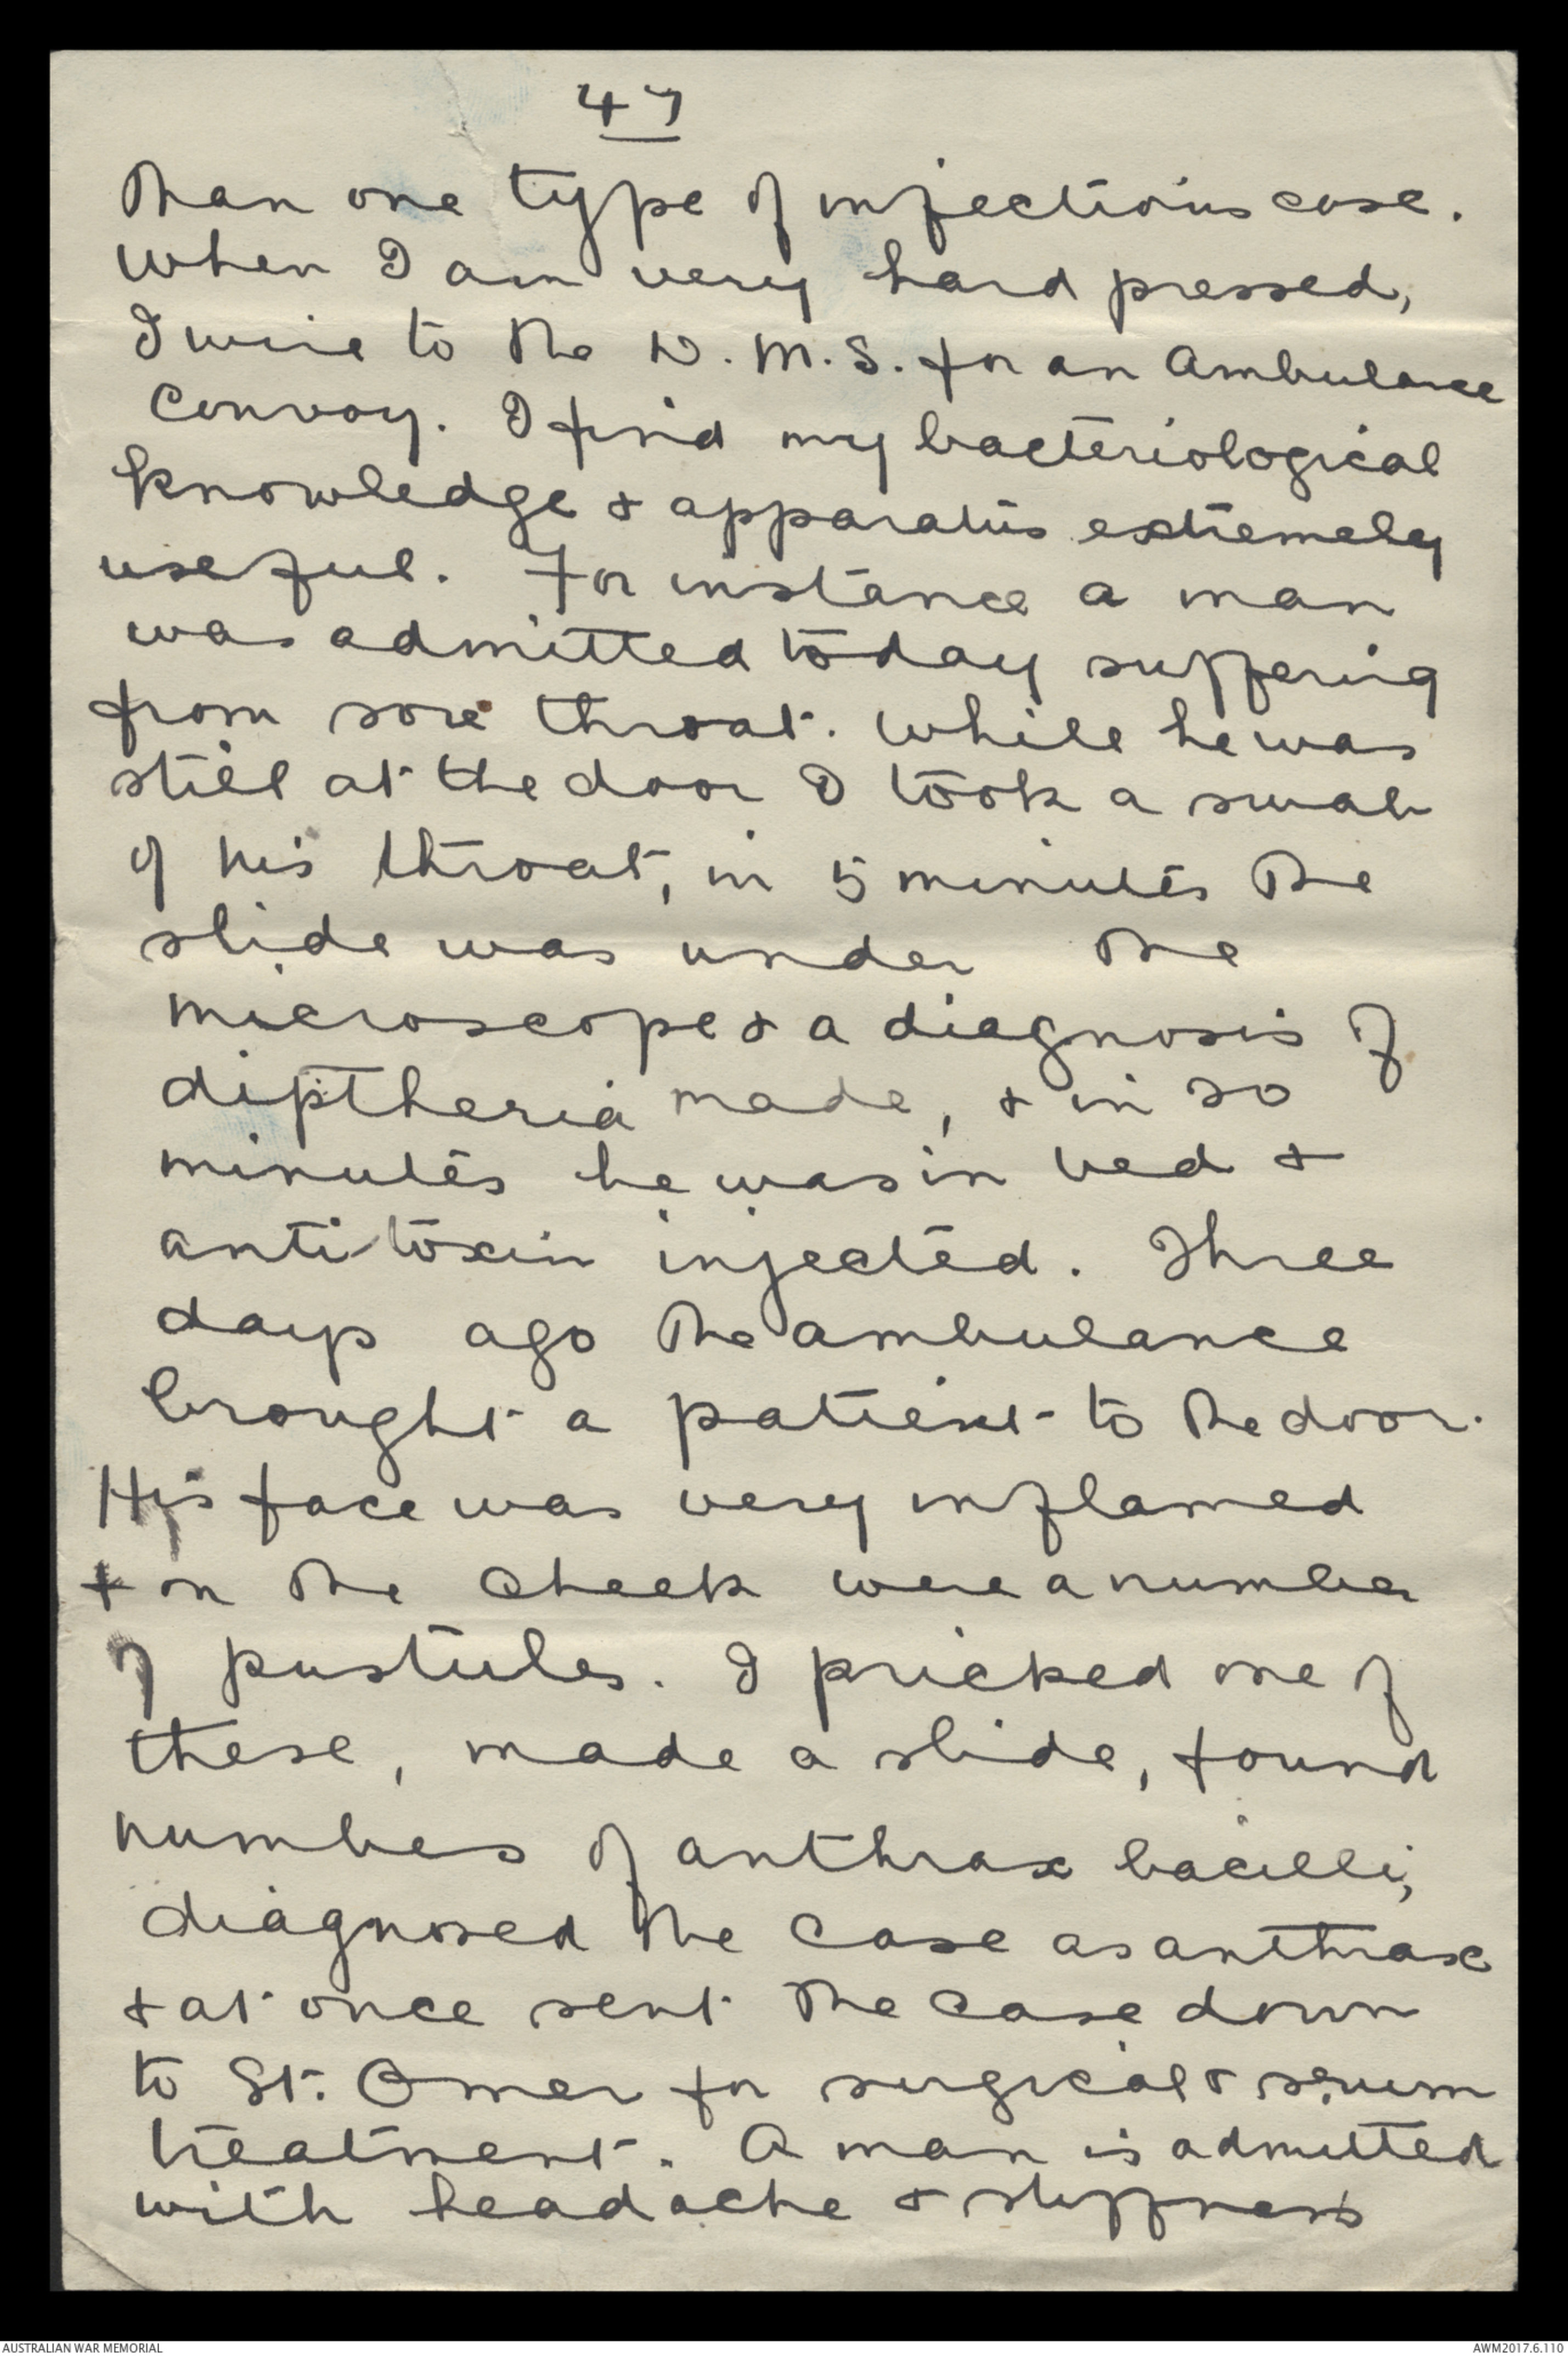 47
than one type of infectious case.
When I am very hard pressed,
I wire to the D.M.S. for an Ambulance
Convoy. I find my bacteriological
knowledge & apparatus extremely
useful. For instance a man
was admitted today suffering
from sore throat. While he was
still at the door I took a swab
of his throat, in 5 minutes the
slide was under the
microscope & a diagnosis of
diptheria made, & in 20
minutes he was in bed &
antitoxin injected. Three
days ago the ambulance
brought a patient to the door.
His face was very inflamed
& on the cheek were a number
of pustules. I pricked one of
these, made a slide, found
numbers of anthrax bacilli,
diagnosed the case as anthrax
& at once sent the case down
to St. Omer for surgical & serum
treatment. A man is admitted
with headache & stiffness
AUSTRALIAN WAR MEMORIAL
AWM2017.6.110